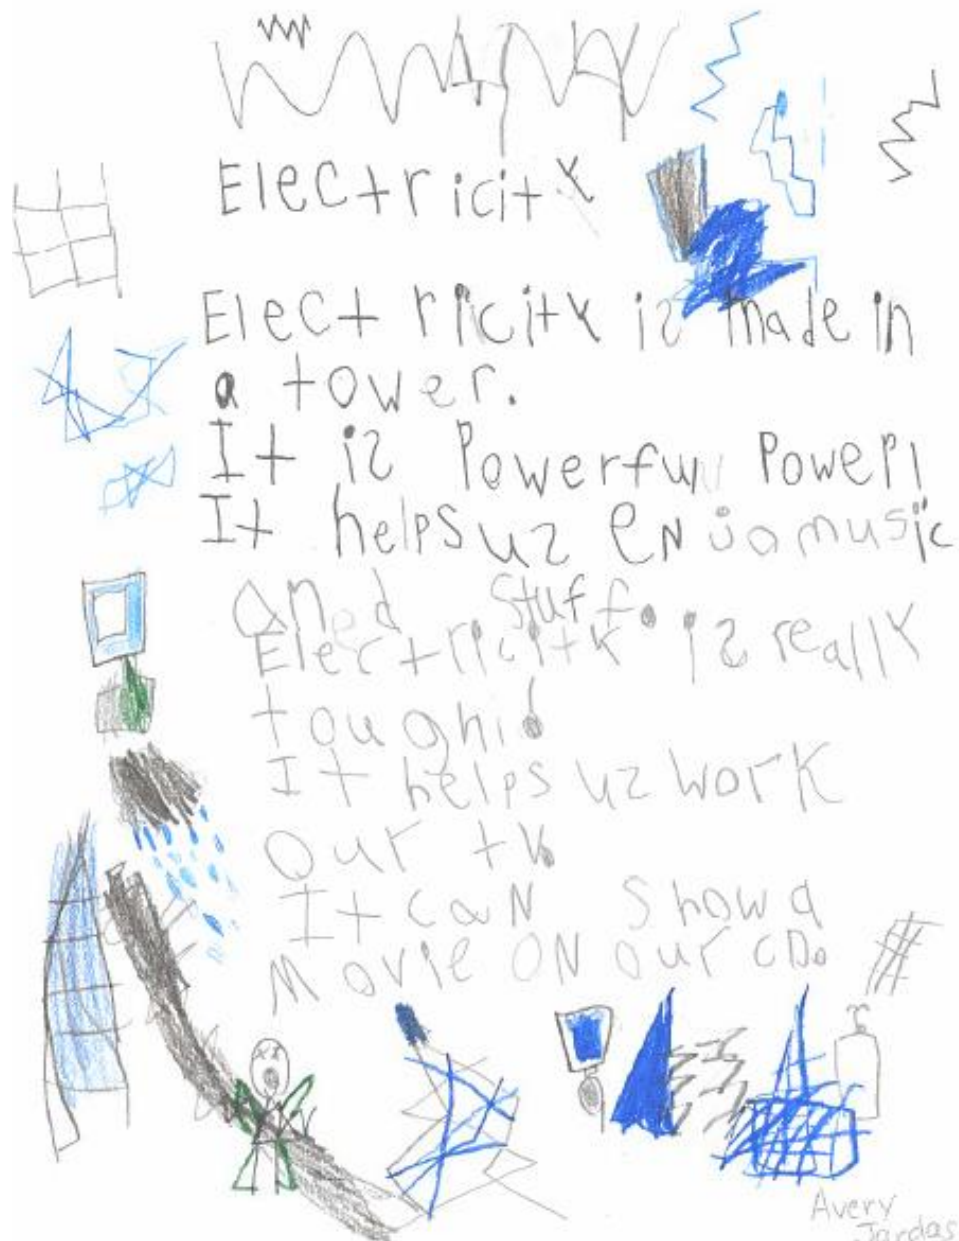 Electricity
Electricity is made in
a tower.
It is Powerful Power!
It helps uz ENjoa music
aned stuff.
Electricity is really
tough!
It helps uz work
our tv.
It can show a
Movie ON our CD.
Avery
Jardas